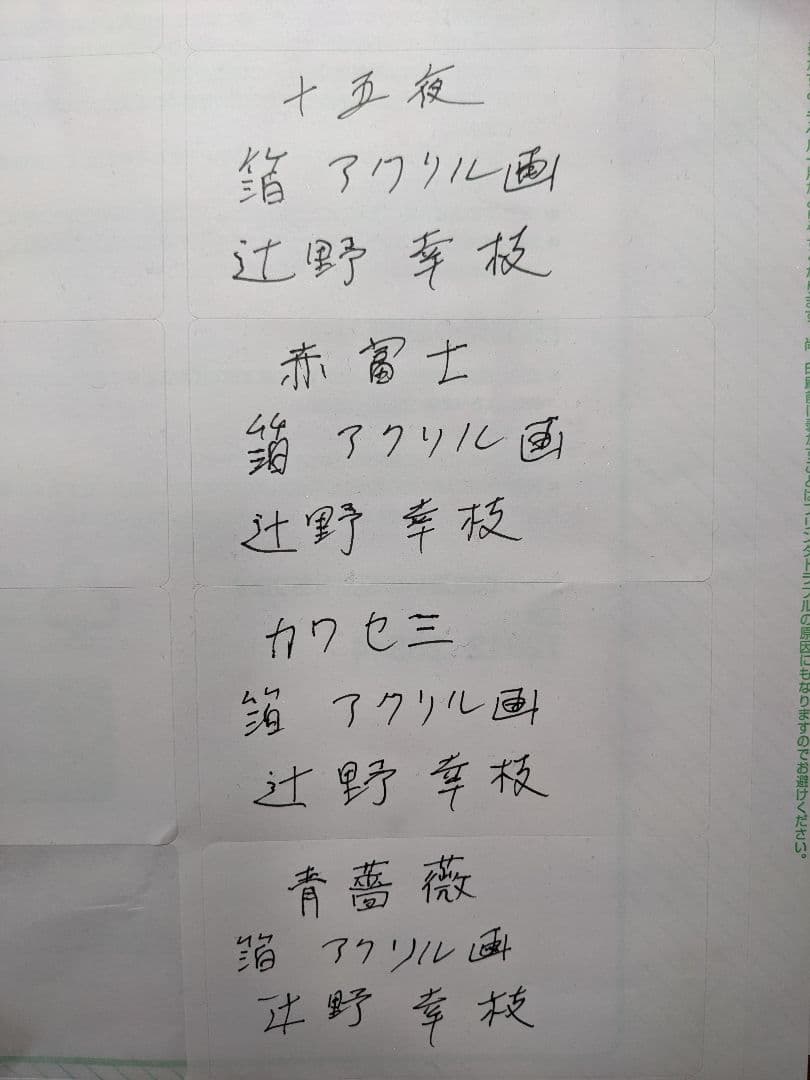 十五夜
箔 アクリル画
辻野 幸枝
赤富士
箔 アクリル画
辻野 幸枝
カワセミ
箔 アクリル画
辻野 幸枝
青薔薇
箔 アクリル画
辻野 幸枝
トラブルの原因にもなりますのでお避けください。